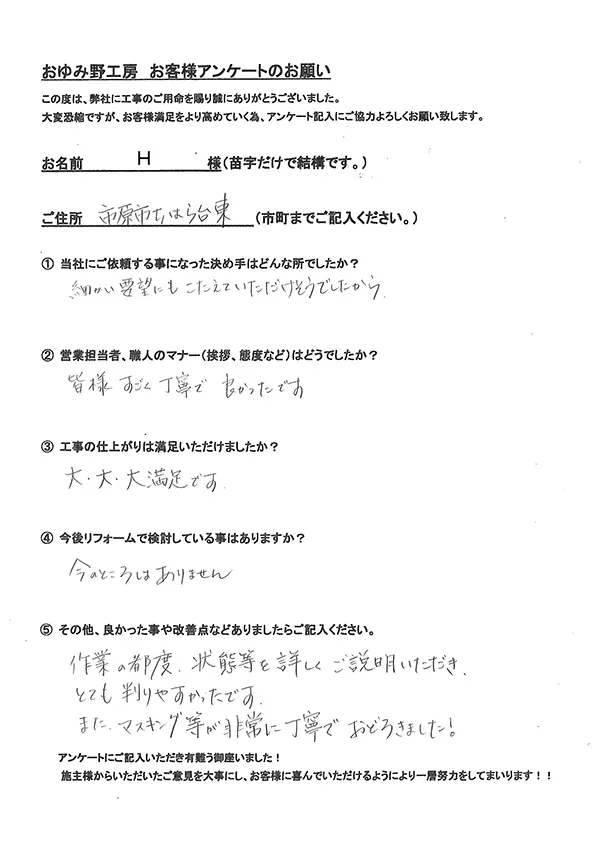 おゆみ野工房 お客様アンケートのお願い
この度は、弊社に工事のご用命を賜り誠にありがとうございました。
大変恐縮ですが、お客様満足をより高めていく為、アンケート記入にご協力よろしくお願い致します。
お名前 H 様(苗字だけで結構です。)
ご住所 市原市ちはら台東 (市町までご記入ください。)
① 当社にご依頼する事になった決め手はどんな所でしたか?
細かい要望にもこたえていただけそうでしたから
② 営業担当者、職人のマナー(挨拶、態度など)はどうでしたか?
皆様 すごく丁寧で 良かったです
③ 工事の仕上がりは満足いただけましたか?
大・大・大満足です。
④ 今後リフォームで検討している事はありますか?
今のところはありません
⑤ その他、良かった事や改善点などありましたらご記入ください。
作業の都度、状態等を詳しくご説明いただき、
とても判りやすかったです。
また、マスキング等が非常に丁寧でおどろきました!
アンケートにご記入いただき有難う御座いました!
施主様からいただいたご意見を大事にし、お客様に喜んでいただけるようにより一層努力をしてまいります!!